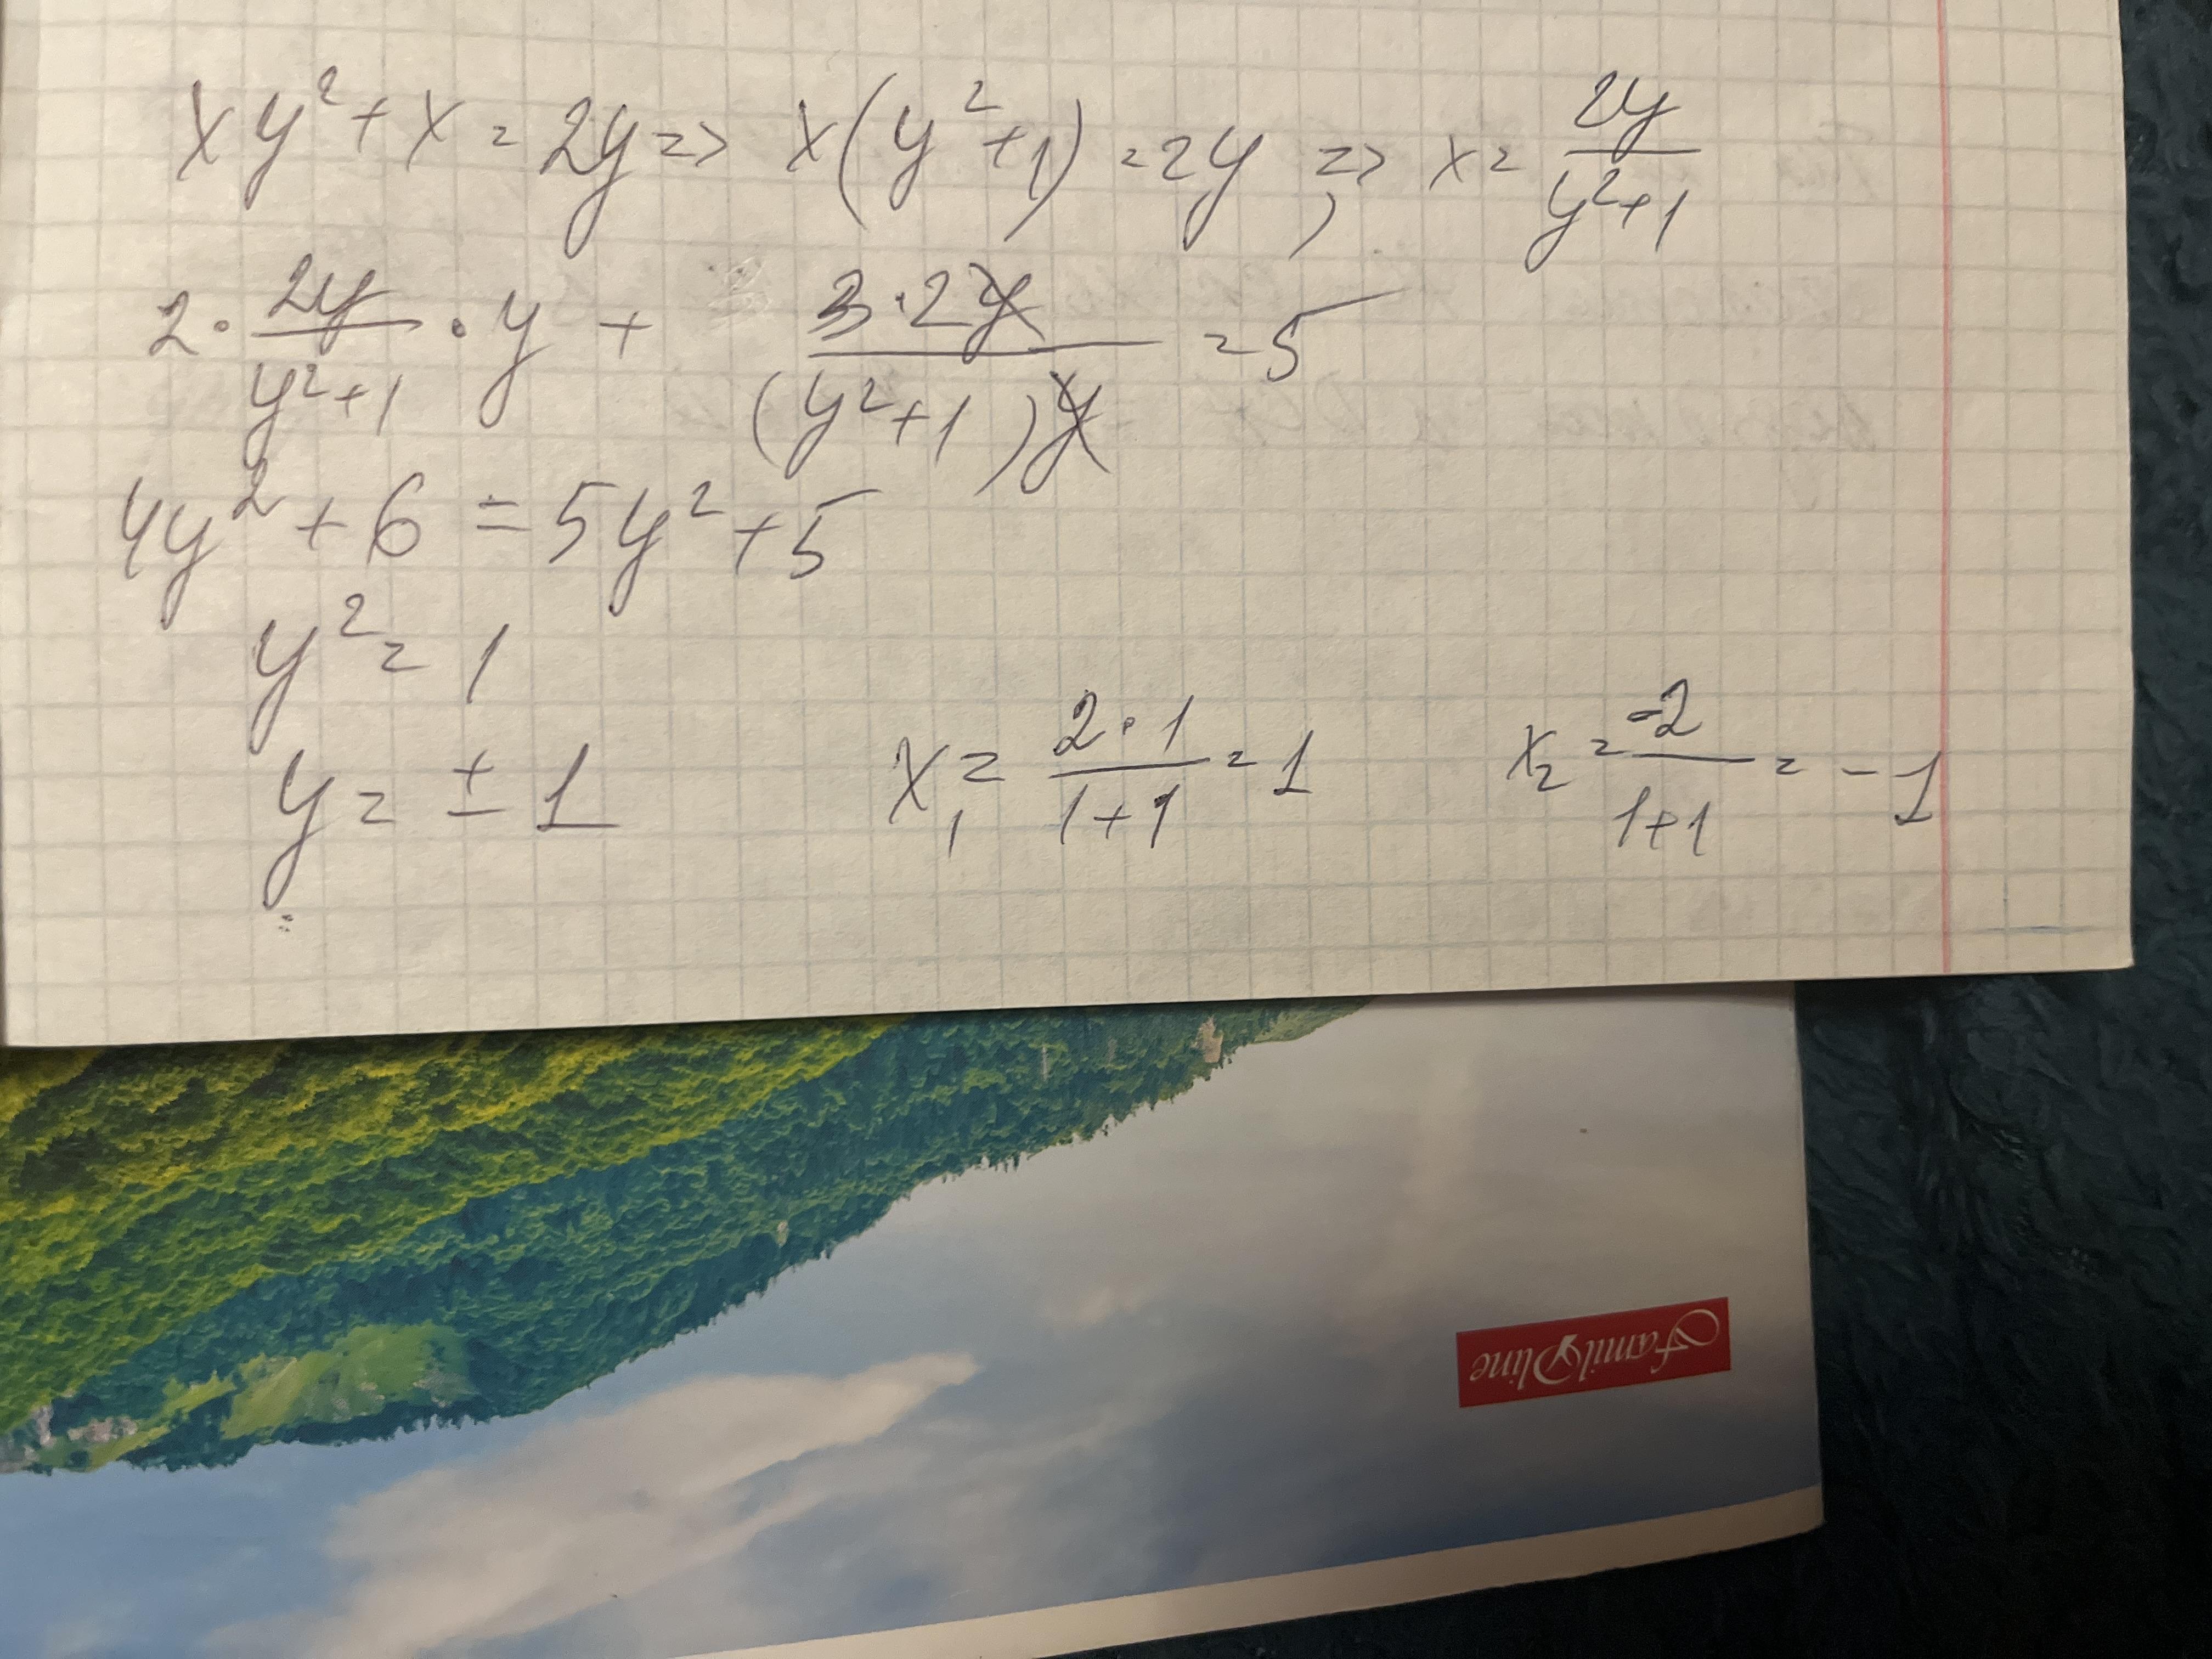 xy²+x=2y=> x(y²+1)=2y, => x=2y/(y²+1)
2·2y/(y²+1)·y+3·2y/((y²+1)y)=5
4y²+6=5y²+5
y²=1
y=±1 x₁=2·1/(1+1)=1 x₂=-2/(1+1)=-1
Family line